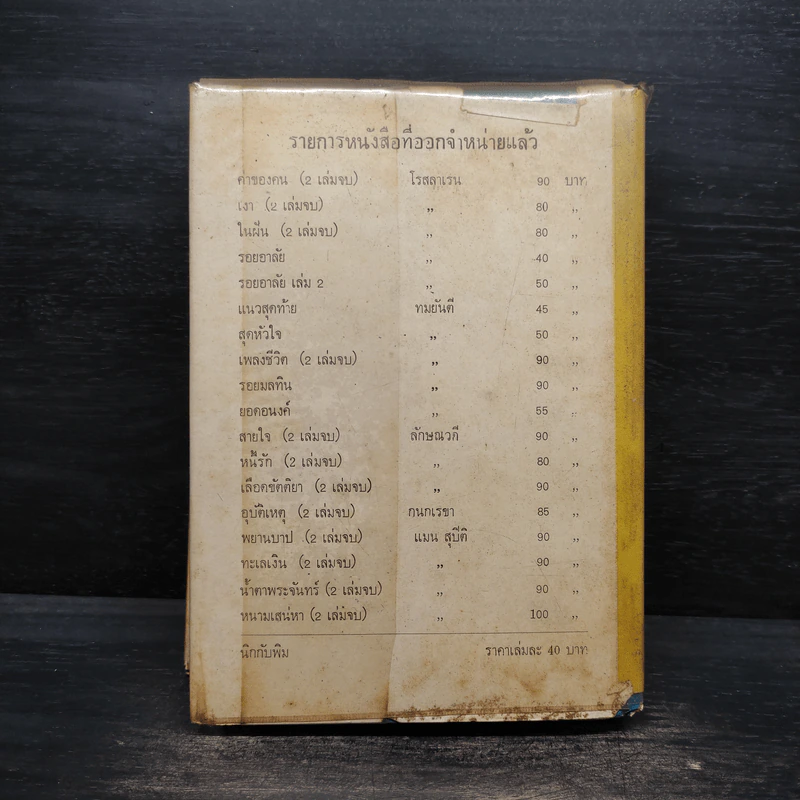 รายการหนังสือที่ออกจำหน่ายแล้ว
ค่าของคน (2 เล่มจบ) โรสลาเรน 90 บาท
เงา (2 เล่มจบ) ,, 80 ,,
ในฝัน (2 เล่มจบ) ,, 80 ,,
รอยอาลัย ,, 40 ,,
รอยอาลัย เล่ม 2 ,, 50 ,,
แนวสุดท้าย ทมยันตี 45 ,,
สุดหัวใจ ,, 50 ,,
เพลงชีวิต (2 เล่มจบ) ,, 90 ,,
รอยมลทิน ,, 90 ,,
ยอดอนงค์ ,, 55 ,,
สายใจ (2 เล่มจบ) ลักษณวดี 90 ,,
หนี้รัก (2 เล่มจบ) ,, 80 ,,
เลือดขัตติยา (2 เล่มจบ) ,, 90 ,,
อุบัติเหตุ (2 เล่มจบ) กนกเรขา 85 ,,
พยานบาป (2 เล่มจบ) แมน สุปิติ 90 ,,
ทะเลเงิน (2 เล่มจบ) ,, 90 ,,
น้ำตาพระจันทร์ (2 เล่มจบ) ,, 90 ,,
หนามเสน่หา (2 เล่มจบ) ,, 100 ,,
นิกกับพิม ราคาเล่มละ 40 บาท